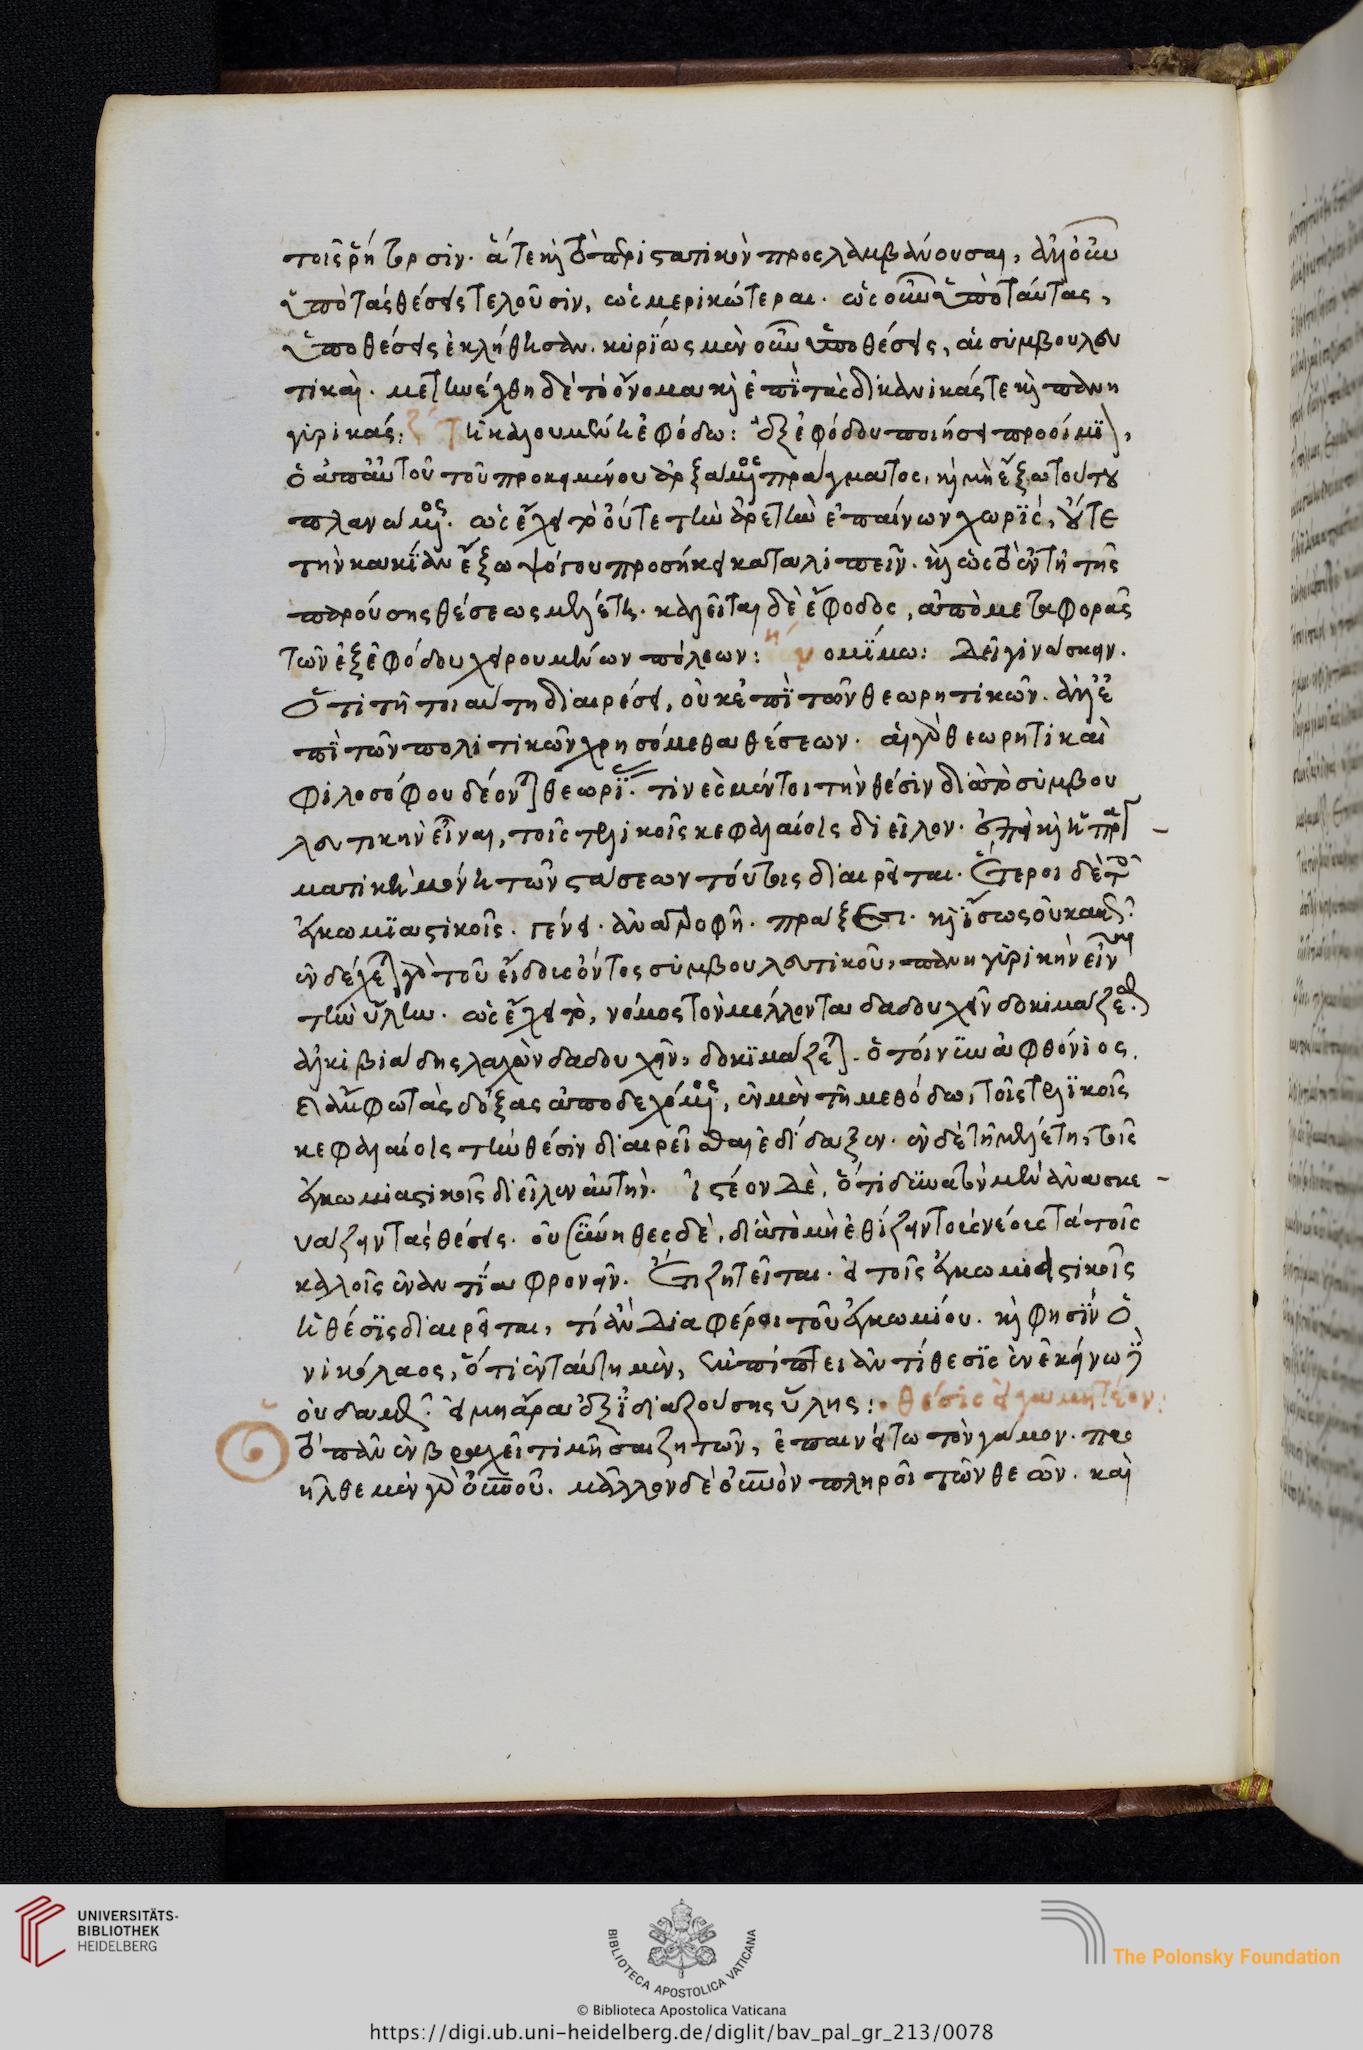 τοῖς ῥήτορσιν. ἅτε καὶ τὸ περιστατικὸν προσλαμβάνουσαι, ἀλλ' οὖν
ὑπὸ τὰς θέσεις τελοῦσιν, ὡς μερικώτεραι. ὡς οὖν ὑπὸ ταύτας,
ὑποθέσεις ἐκλήθησαν. κυρίως μὲν οὖν ὑποθέσεις, αἱ συμβουλευ
τικαί. μετηνέχθη δὲ τὸ ὄνομα καὶ ἐπὶ τὰς δικανικάς τε καὶ πανη
γυρικάς: ζ' Τῆ καλουμένη ἐφόδω: ἐξ ἐφόδου ποιήσει προοίμιον,
ὁ ἀπ' αὐτοῦ τοῦ προκειμένου ἀρξάμενος πράγματος, καὶ μὴ ἔξω τούτου
πλανώμενος. ὡς ἔχει τὸ οὔτε τὴν ἀρετὴν ἐπαίνων χωρὶς, οὔτε
τὴν κακίαν ἔξω ψόγου προσήκει καταλιπεῖν. καὶ ὡς τὸ ἐν τῆ τῆς
παρούσης θέσεως μελέτη. καλεῖται δὲ ἔφοδος, ἀπὸ μεταφορᾶς
τῶν ἐξ ἐφόδου χειρουμένων πόλεων: η' νομίμω: Δεῖ γινώσκειν.
ὅτι τῆ τοιαύτη διαιρέσει, οὐκ ἐπὶ τῶν θεωρητικῶν. ἀλλ' ἐ
πὶ τῶν πολιτικῶν χρησόμεθα θέσεων. αἱ γὰρ θεωρητικαὶ
φιλοσόφου δέονται θεωρίας. τινὲς μέντοι τὴν θέσιν διὰ τὸ συμβου
λευτικὴν εἶναι, τοῖς τελικοῖς κεφαλαίοις διεῖλον. ἐπεὶ καὶ ἡ πραγ
ματικὴ μόνη τῶν στάσεων τούτοις διαιρεῖται. Ἕτεροι δὲ τοῖς
ἐγκωμιαστικοῖς. γένει. ἀνατροφῆ. πράξεσι. καὶ ἴσως οὐ κακῶς.
ἐνδέχεται γὰρ τοῦ εἴδους ὄντος συμβουλευτικοῦ, πανηγυρικὴν εἶναι
τὴν ὕλην. ὡς ἔχει τὸ, νόμος τὸν μέλλοντα δαδουχεῖν δοκιμάζεσθαι.
ἀλκιβιάδης λαχὼν δαδουχεῖν, δοκιμάζεται. ὁ τοίνυν ἀφθόνιος.
ἄμφω τὰς δόξας ἀποδεχόμενος, ἐν μὲν τῆ μεθόδω, τοῖς τελικοῖς
κεφαλαίοις τὴν θέσιν διαιρεῖσθαι ἐδίδαξεν. ἐν δὲ τῆ μελέτη, τοῖς
ἐγκωμιαστικοῖς διεῖλεν αὐτήν. Ἰστέον Δὲ, ὅτι δυνατὸν μὲν ἀνασκε
υάζειν τὰς θέσεις. οὐ σύνηθες δὲ, διὰ τὸ μὴ ἐθίζειν τοὺς νέους τὰ τοῖς
καλοῖς ἐναντία φρονεῖν. Ἐπιζητεῖται. εἰ τοῖς ἐγκωμιαστικοῖς
ἡ θέσις διαιρεῖται, τί ἂν Διαφέρει τοῦ ἐγκωμίου. καὶ φησὶν ὁ
νικόλαος, ὅτι ἐν ταύτη μὲν, ἐμπίπτει ἀντίθεσις ἐν ἐκείνω δὲ
οὐδαμῶς. εἰ μὴ ἄρα ἐξ ἰδιαζούσης ὕλης: θέσις εἰ γαμητέον:
Ὁ τὸ πᾶν ἐν βραχεῖ τιμῆσαι ζητῶν, ἐπαινείτω τὸν γάμον. προ
ῆλθε μὲν γὰρ ἐξ οὐρανοῦ. μᾶλλον δὲ οὐρανὸν πληροῖ τῶν θεῶν. καὶ
UNIVERSITÄTS-
BIBLIOTHEK
HEIDELBERG
BIBLIOTECA APOSTOLICA VATICANA
The Polonsky Foundation
© Biblioteca Apostolica Vaticana
https://digi.ub.uni-heidelberg.de/diglit/bav_pal_gr_213/0078